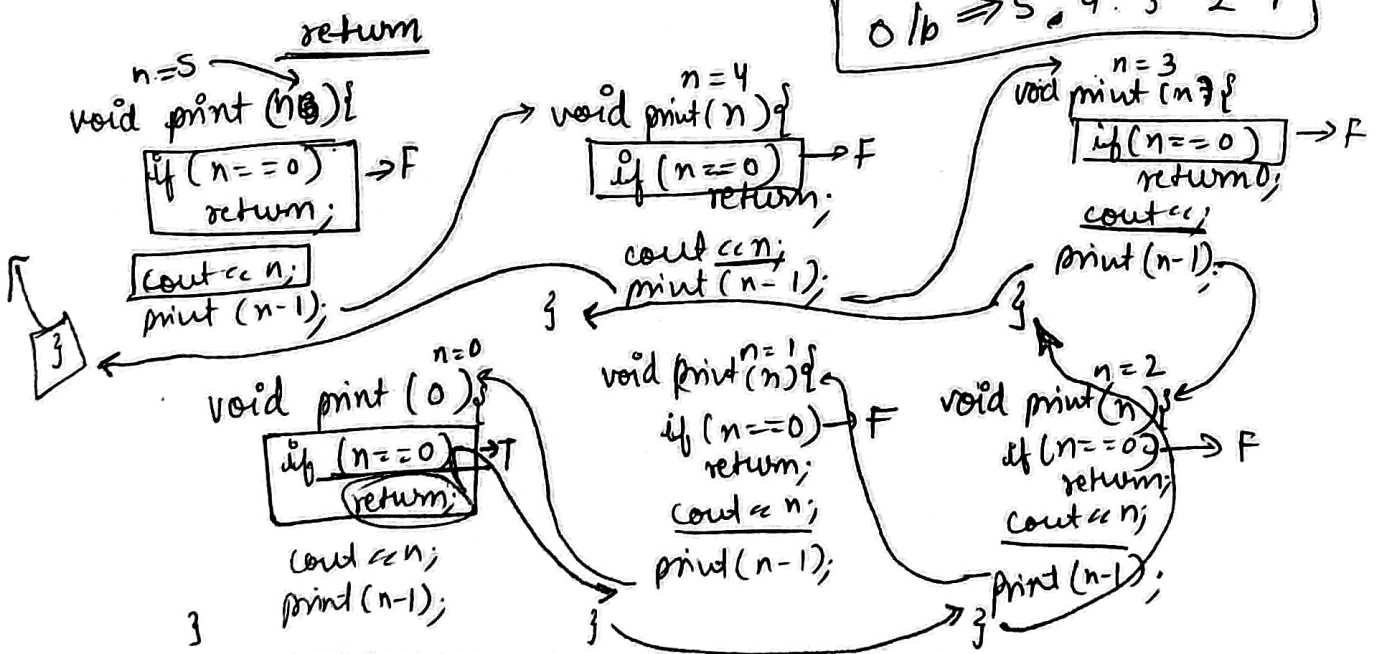 o/b ⇒ 5 . 4 . 3 2 1
return
n=5
void print (n){
if (n==0) → F
return;
cout << n;
print (n-1);
}
n=4
void print(n){
if (n==0) → F
return;
cout << n;
print (n-1);
}
n=3
void print (n){
if (n==0) → F
return 0;
cout <<;
print (n-1);
}
n=2
void print(n){
if (n==0) → F
return;
cout << n;
print (n-1);
}
n=1
void print(n){
if (n==0) → F
return;
cout << n;
print(n-1);
}
n=0
void print (0){
if (n==0) → T
return;
cout << n;
print (n-1);
}